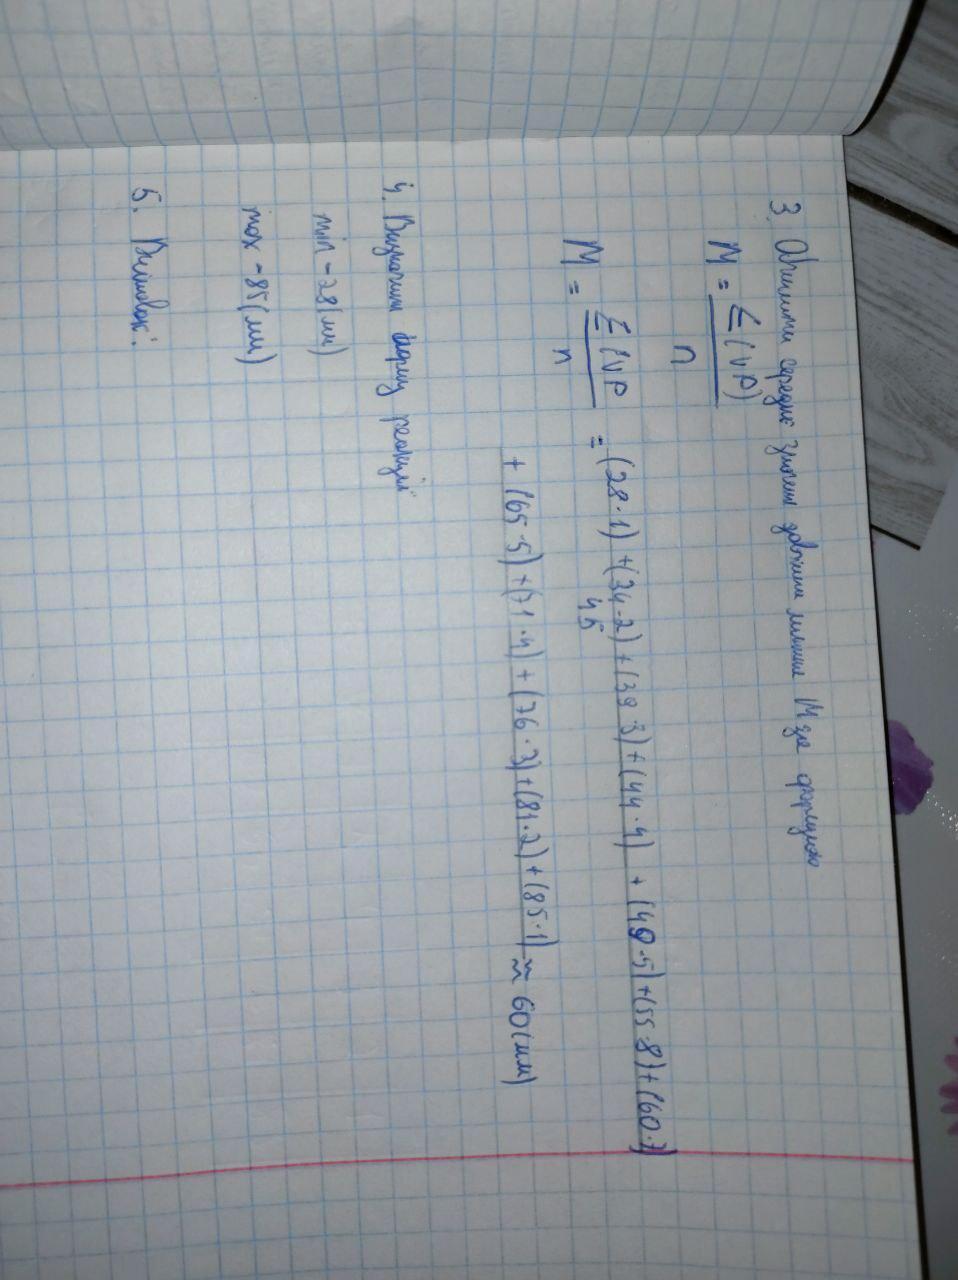 3. Обчислити середнє значення довжини листків M за формулою
M = Σ(VP)
n
M = Σ(VP = (28·1) + (34·2) + (39·3) + (44·4) + (49·5) + (55·8) + (60·7)
n 45
+ (65·5) + (71·4) + (76·3) + (81·2) + (85·1) ≈ 60(мм)
4. Визначити норму реакції
min - 28(мм)
max - 85(мм)
5. Висновок: